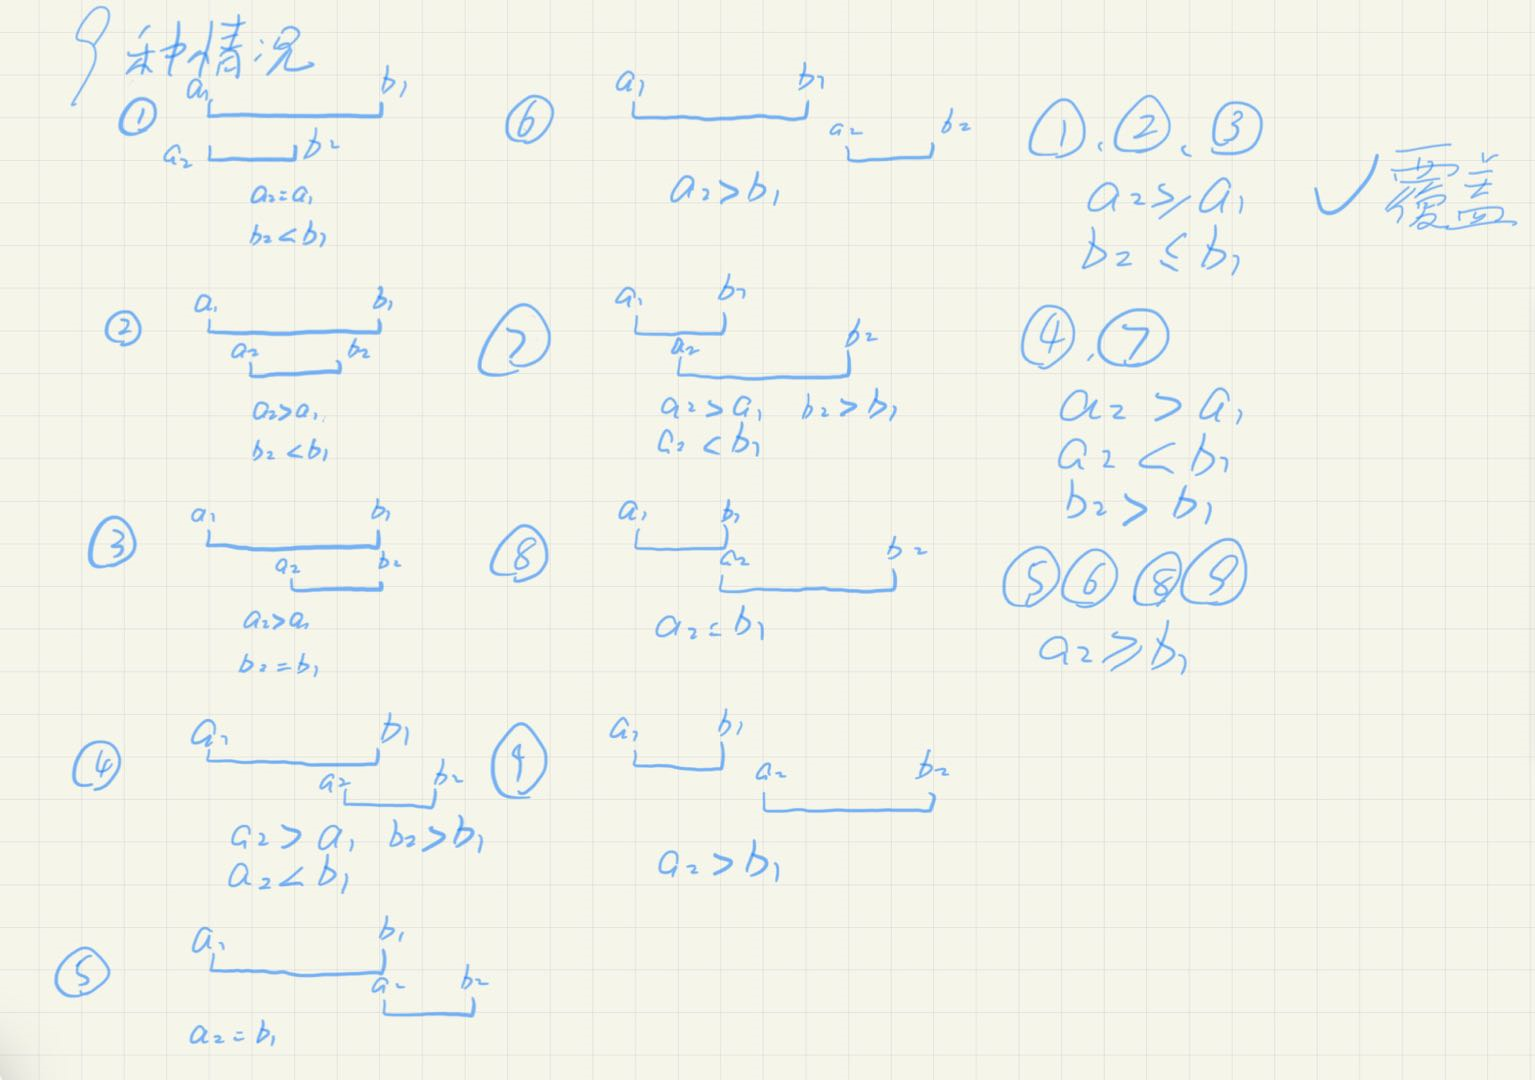 9种情况
①
a₁ b₁
a₂ b₂
a₂=a₁
b₂<b₁
②
a₁ b₁
a₂ b₂
a₂>a₁
b₂<b₁
③
a₁ b₁
a₂ b₂
a₂>a₁
b₂=b₁
④
a₁ b₁
a₂ b₂
a₂>a₁ b₂>b₁
a₂<b₁
⑤
a₁ b₁
a₂ b₂
a₂=b₁
⑥
a₁ b₁
a₂ b₂
a₂>b₁
⑦
a₁ b₁
a₂ b₂
a₂>a₁ b₂>b₁
a₂<b₁
⑧
a₁ b₁
a₂ b₂
a₂=b₁
⑨
a₁ b₁
a₂ b₂
a₂>b₁
①、②、③
a₂≥a₁ ✓覆盖
b₂≤b₁
④、⑦
a₂>a₁
a₂<b₁
b₂>b₁
⑤⑥⑧⑨
a₂≥b₁